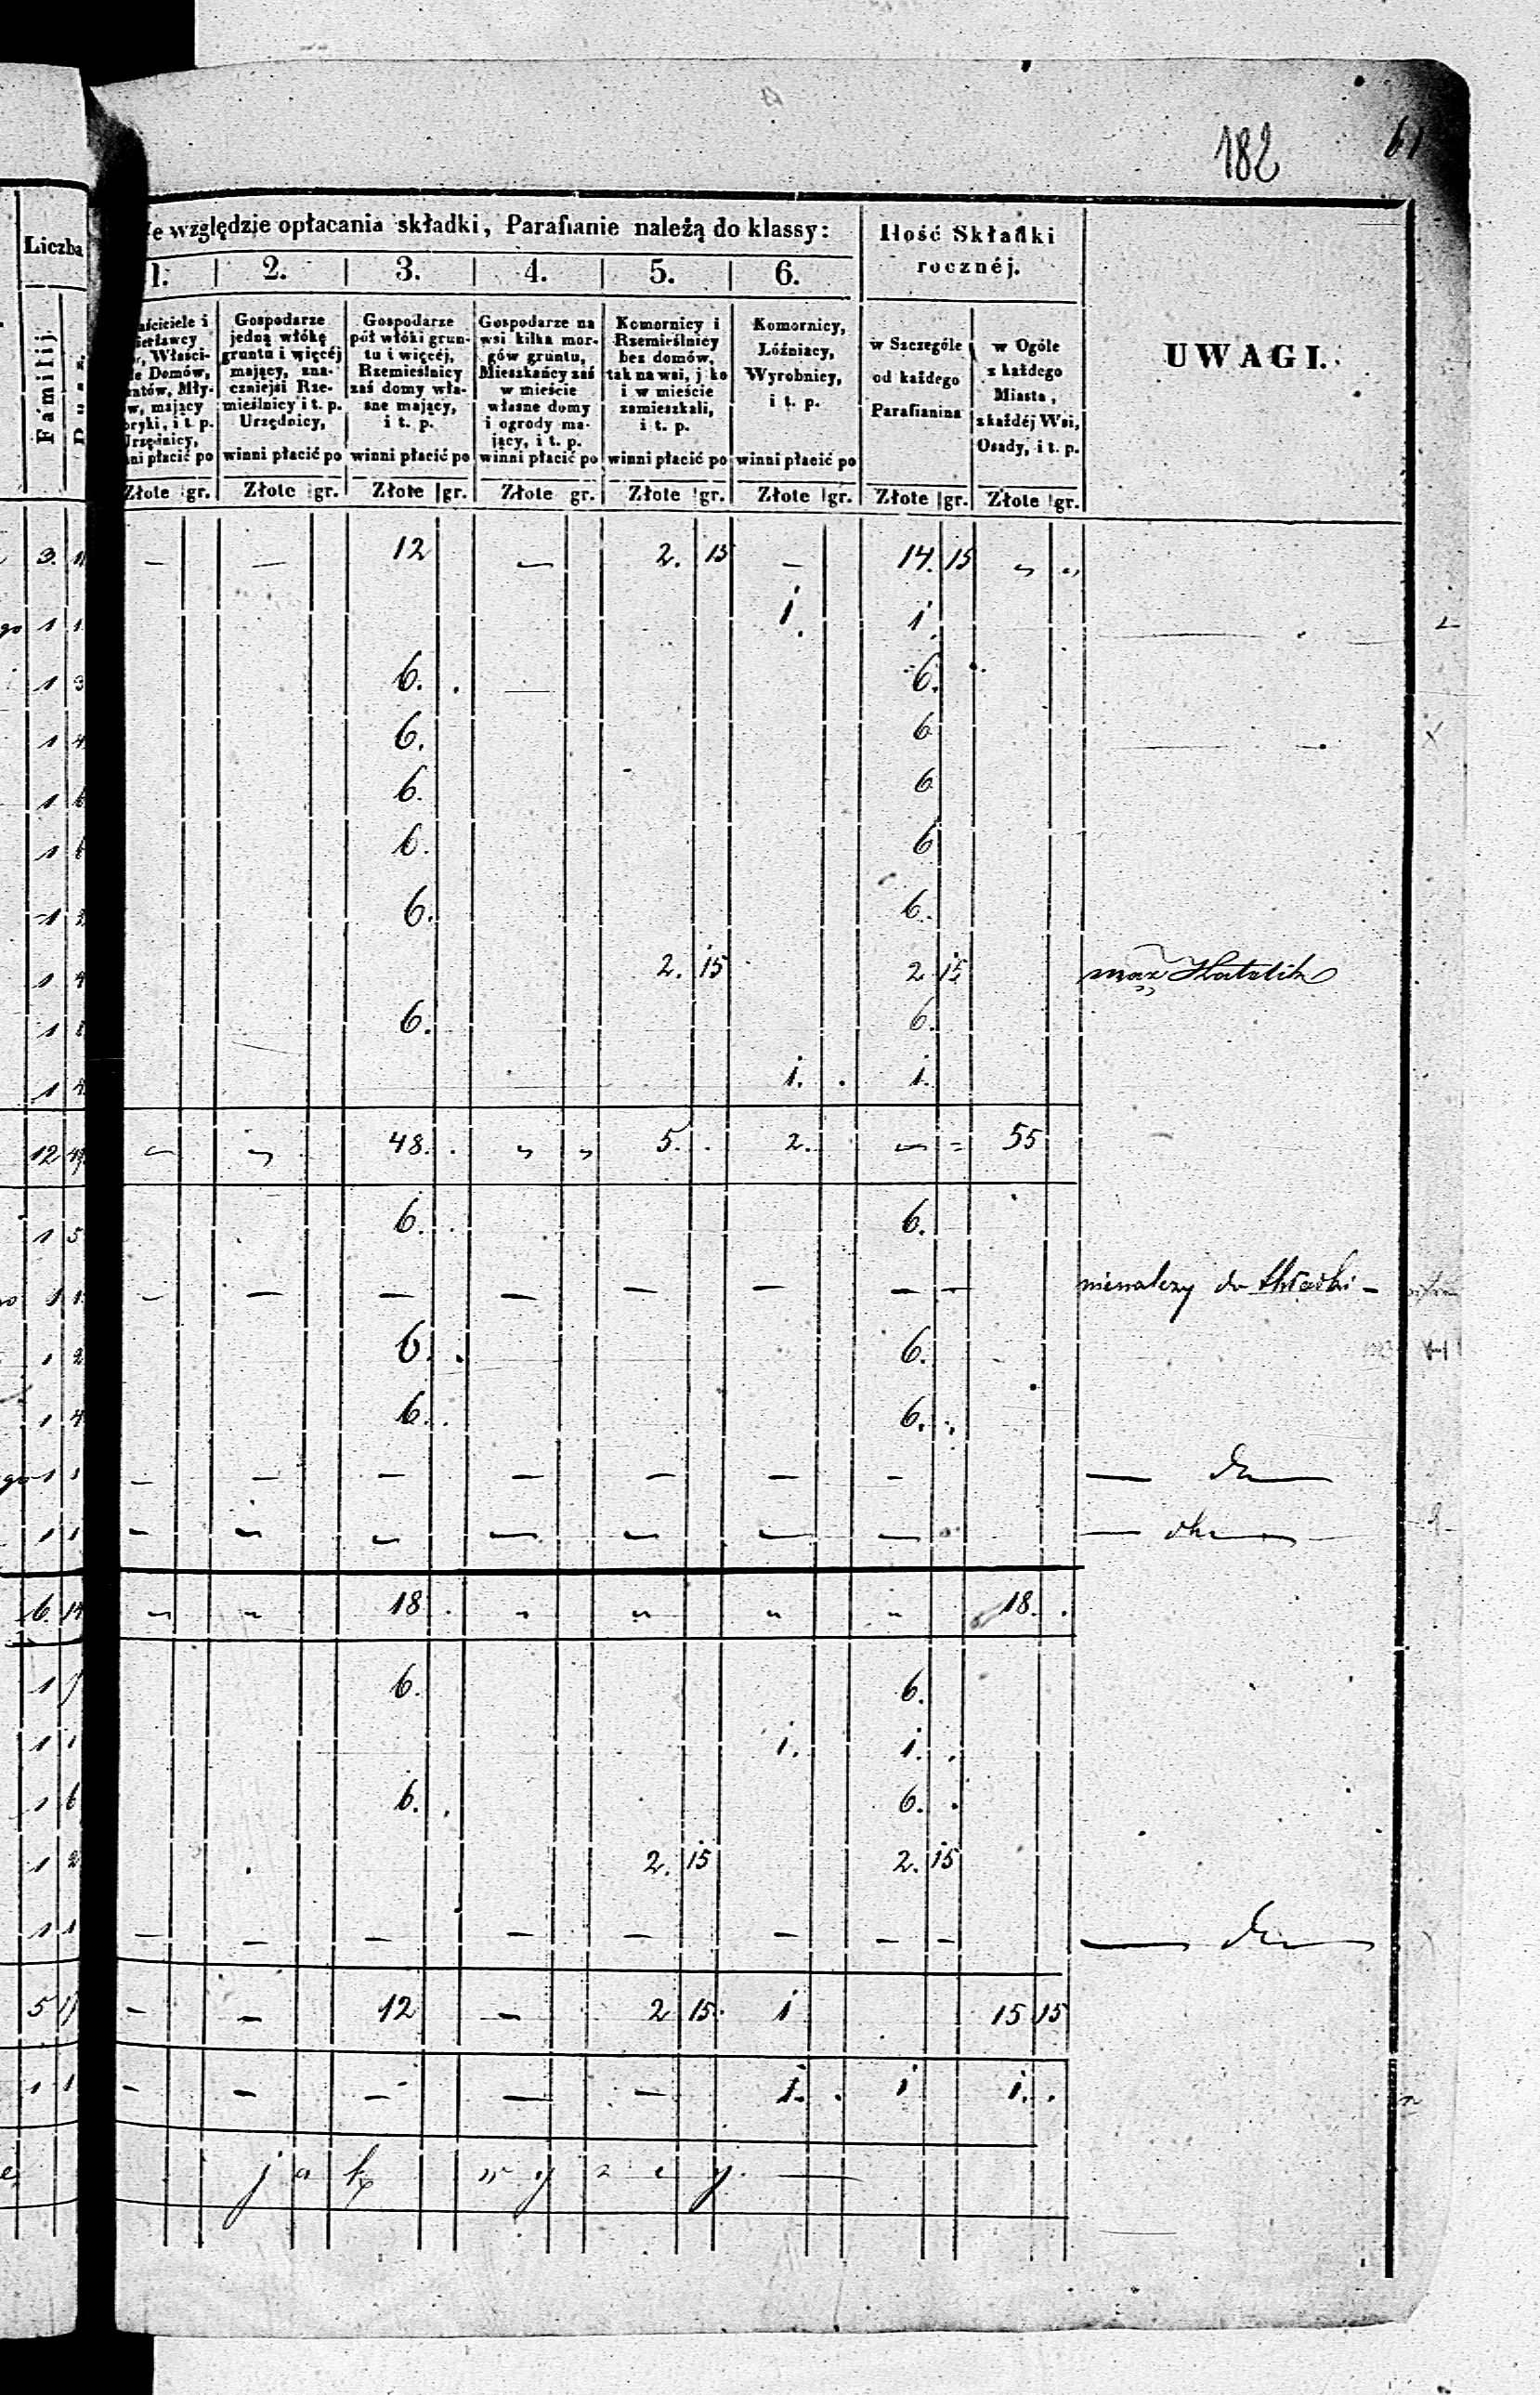 182 61
Liczba
Familij.
Dusz.
We względzie opłacania składki, Parafianie należą do klassy:
Ilość Składki rocznéj.
UWAGI.
1. | 2. | 3. | 4. | 5. | 6.
Gospodarze jedną włókę gruntu i więcéj mający, znaczniejsi Rzemieślnicy i t. p. Urzędnicy, winni płacić po
Gospodarze pół włóki gruntu i więcéj, Rzemieślnicy zaś domy własne mający, i t. p. winni płacić po
Gospodarze na wsi kilka morgów gruntu, Mieszkańcy zaś w mieście własne domy i ogrody mający, i t. p. winni płacić po
Komornicy i Rzemieślnicy bez domów, tak na wsi, j ko i w mieście zamieszkali, i t. p. winni płacić po
Komornicy, Lóźniacy, Wyrobnicy, i t. p. winni płacić po
w Szczególe od każdego Parafianina
w Ogóle z każdego Miasta, z każdéj Wsi, Osady, i t. p.
Złote gr. | Złote gr. | Złote gr. | Złote gr. | Złote gr. | Złote gr. | Złote gr. | Złote gr.
3. — — 12 — 2. 15 — 14. 15 " "
1 1 i. i.
1 3 6. . — 6.
1 4 6. 6
1 6 6. 6
1 6 6. 6
1 6. 6.
1 4 2. 15 2 15 mąż Katolik
1 6. 6.
1 4 i. . i.
12 " " 48. . " " 5. . 2. " = 55
1 5 6. . 6.
1 1 — — — — — — — — nienalezy do składki -
1 2 6. . 6.
1 4 6. . 6. .
1 1 — — — — — — — — do —
1 1 — — — — — — —
6. 14 " " 18 . " " " " 18. .
1 6. 6.
1 1 i. i. .
1 6 6. . 6. .
1 2 2. 15 2. 15
1 1 — — — — — — — - — do —
5 — — 12 — 2 15. i 15 15
1 1 — — — — — i. . i i. .
jak wyzey. —